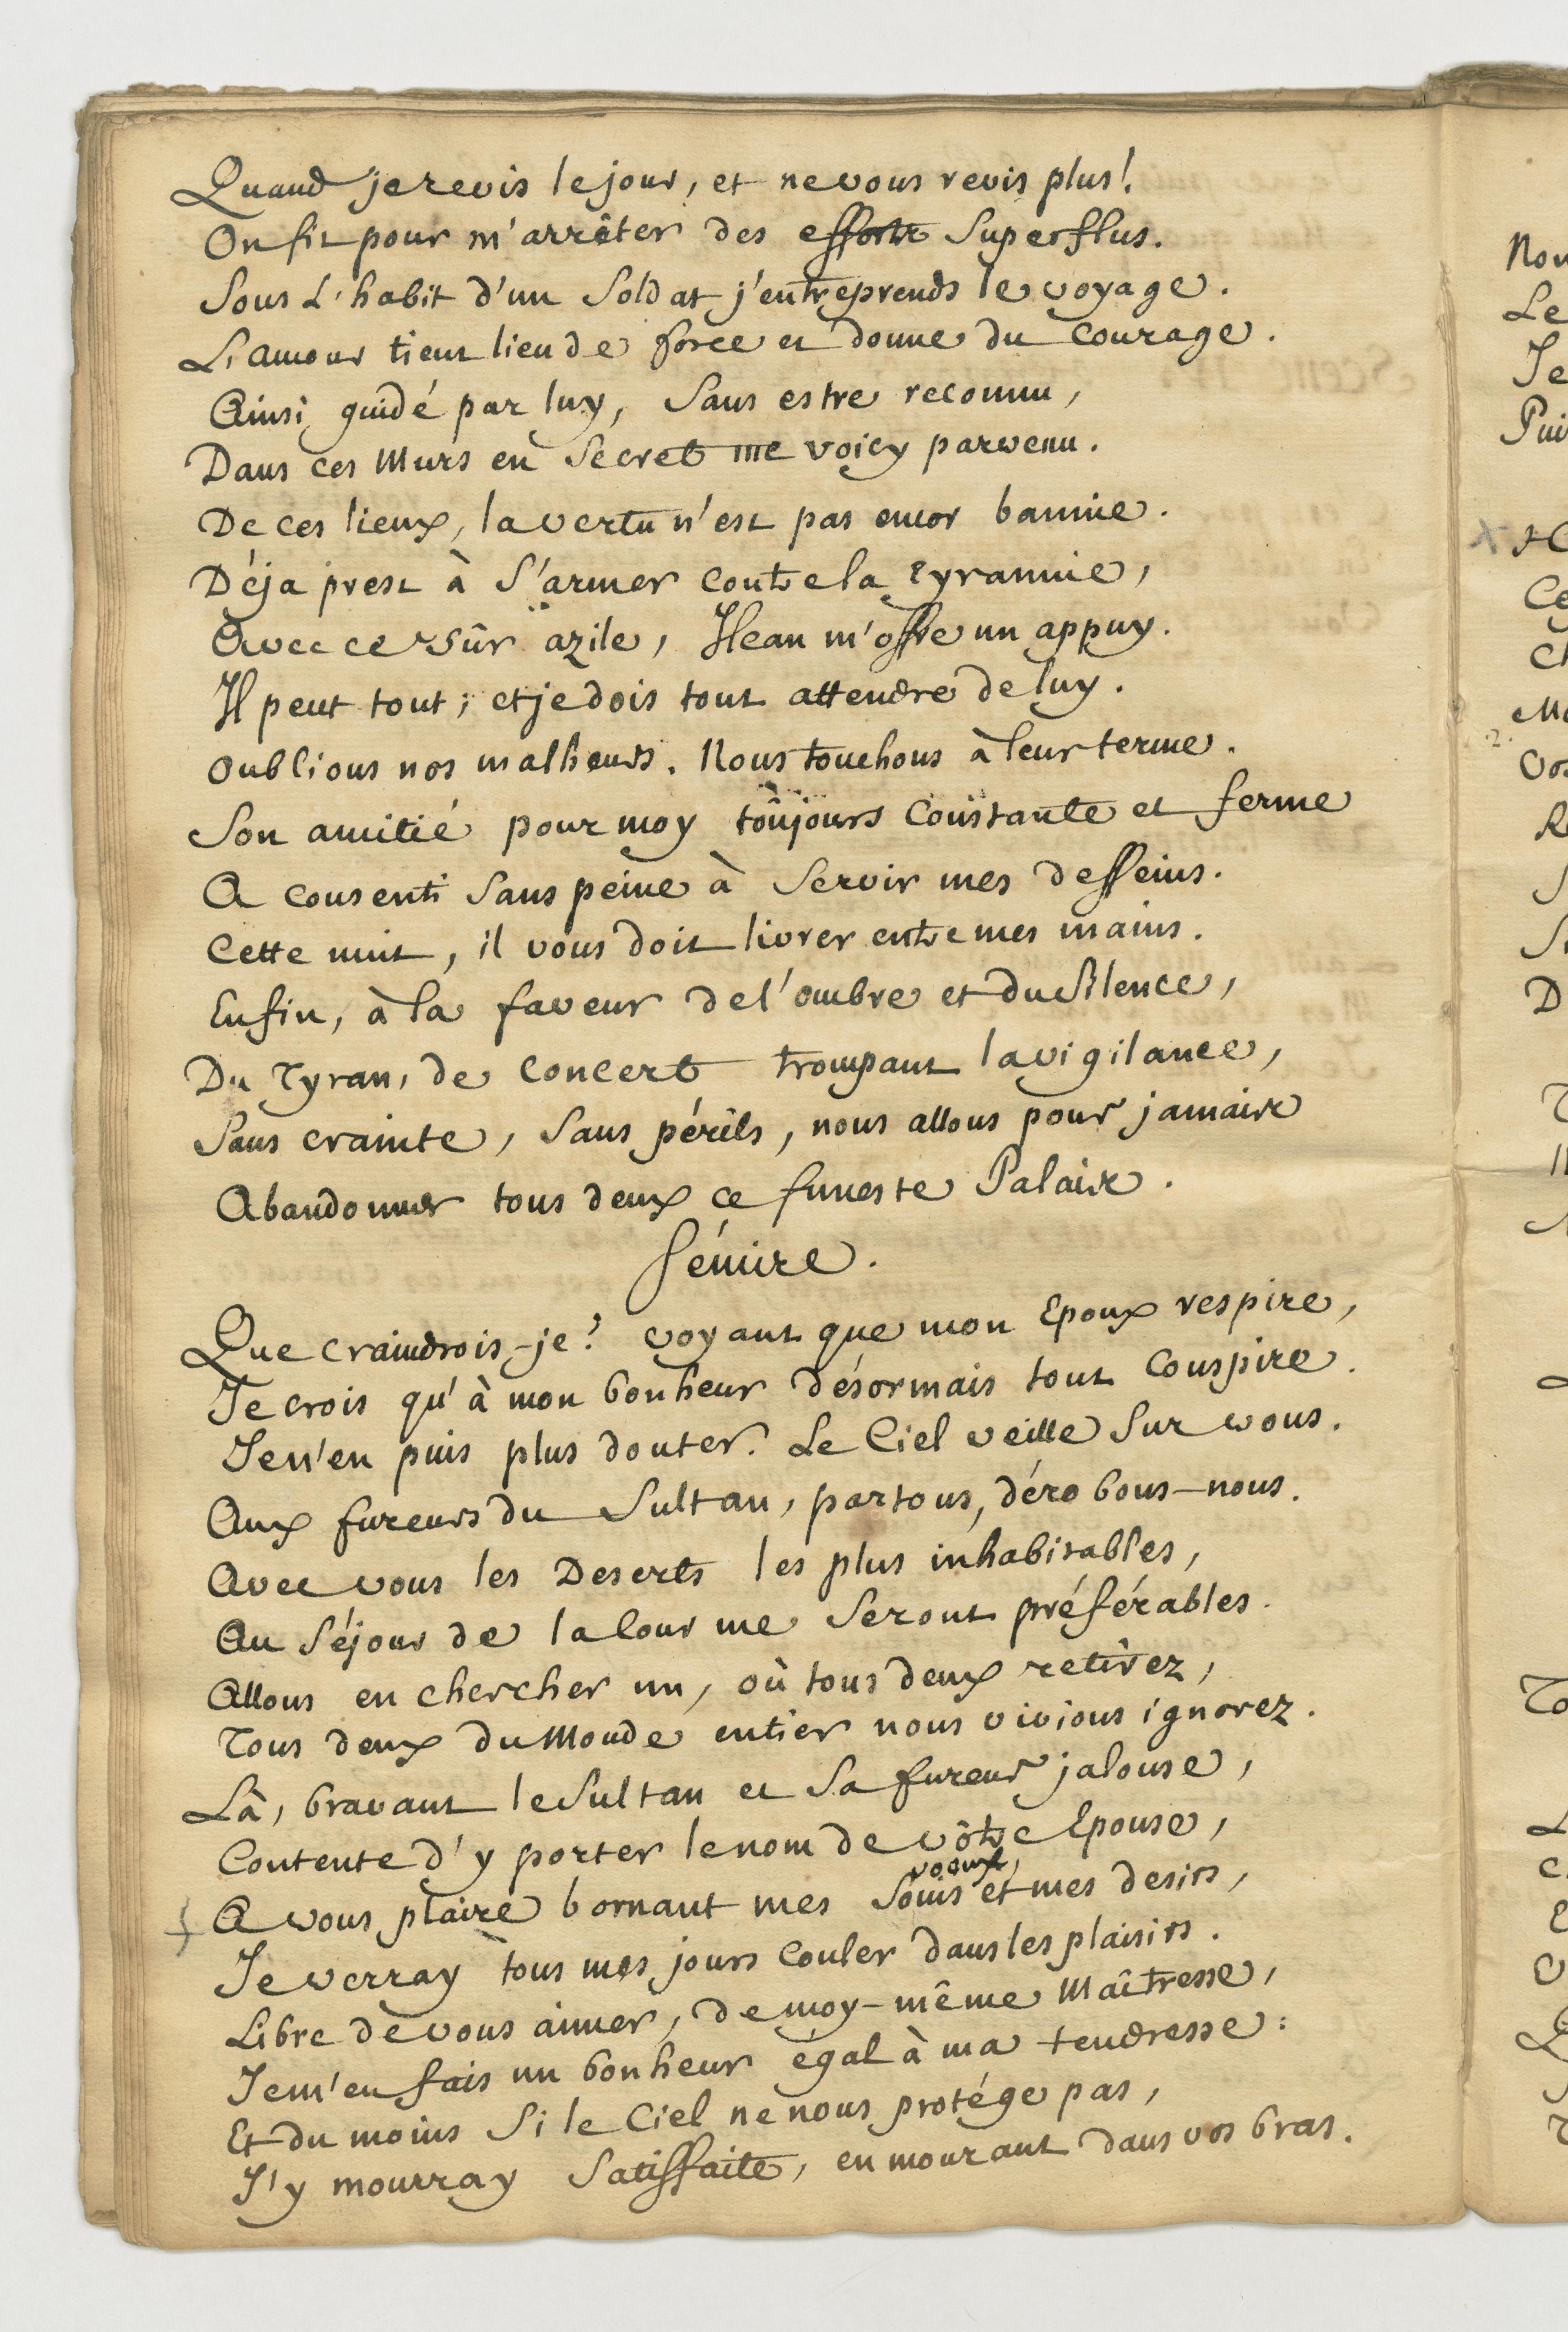 Quand je revis le jour, et ne vous revis plus!
On fit pour m'arrêter des efforts superflus.
Sous L'habit d'un Soldat j'entreprends le voyage.
L'amour tient lieu de force et donne du courage.
Ainsi guidé par luy, Sans estre reconnu,
Dans ces Murs en Secret me voicy parvenu.
De ces lieux, la vertu n'est pas encor bannie.
Déja prest à S'armer contre la Tyrannie,
Avec ce sûr azile, Hean m'offre un appuy.
Il peut tout; et je dois tout attendre de luy.
Oublions nos malheurs. Nous touchons à leur terme.
Son amitié pour moy toûjours Constante et ferme
A consenti Sans peine à Servir mes desseins.
Cette nuit, il vous doit livrer entre mes mains.
Enfin, à la faveur de l'ombre et du Silence,
Du Tyran, de Concert trompant la vigilance,
Sans crainte, Sans périls, nous allons pour jamais
Abandonner tous deux ce funeste Palais.
Sémire.
Que craindrois-je? voyant que mon Epoux respire,
Je crois qu'à mon bonheur désormais tout Conspire.
Je n'en puis plus douter. Le Ciel veille Sur vous.
Aux fureurs du Sultan, partons, dérobons-nous.
Avec vous les Deserts les plus inhabitables,
Au Séjour de la Cour me Seront préférables.
Allons en chercher un, où tous deux retirez,
Tous deux du Monde entier nous vivions ignorez.
Là, bravant le Sultan et Sa fureur jalouse,
Contente d'y porter le nom de vôtre Epouse,
voeux,
A vous plaire bornant mes Soins et mes desirs,
Je verray tous mes jours Couler dans les plaisirs.
Libre de vous aimer, de moy-même Maîtresse,
Je m'en fais un bonheur égal à ma tendresse:
Et du moins Si le Ciel ne nous protége pas,
J'y mourray Satisfaite, en mourant dans vos bras.
Nou
Le
Je
Pui
Ce
D
To